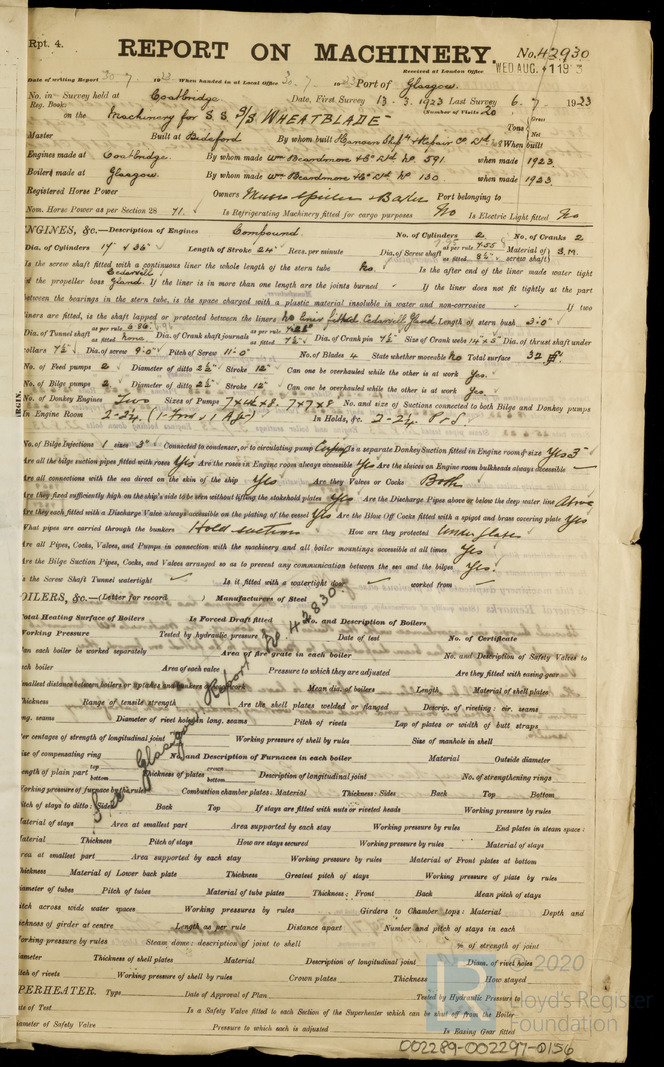 Rpt. 4.
REPORT ON MACHINERY.
No. 42930
WED AUG.
Date of writing Report 30.7 1923 When handed in at Local Office 30.7 1923 Port of Glasgow.
Received at London Office
No. in Survey held at Coatbridge Date, First Survey 13.3.1923 Last Survey 6.7 1923
Reg. Book. (Number of Visits 20
on the Machinery for S.S. "WHEATBLADE" Tons Gross Net
Master Built at Bideford By whom built Hansen Ship & Repair Co Ltd When built
Engines made at Coatbridge. By whom made Wm Beardmore & Co Ltd No 591 when made 1923
Boilers made at Glasgow. By whom made Wm Beardmore & Co Ltd No 130 when made 1923
Registered Horse Power Owners Port belonging to
Nom. Horse Power as per Section 28 71. Is Refrigerating Machinery fitted for cargo purposes No Is Electric Light fitted No
ENGINES, &c.—Description of Engines Compound. No. of Cylinders 2 No. of Cranks 2
Dia. of Cylinders 17" & 36" Length of Stroke 24" Revs. per minute Dia. of Screw shaft as per rule 7.55 as fitted 8½" Material of screw shaft S.M.
Is the screw shaft fitted with a continuous liner the whole length of the stern tube No. Is the after end of the liner made water tight
in the propeller boss Gland. If the liner is in more than one length are the joints burned If the liner does not fit tightly at the part
between the bearings in the stern tube, is the space charged with a plastic material insoluble in water and non-corrosive If two
liners are fitted, is the shaft lapped or protected between the liners No liner fitted Cedervall Gland Length of stern bush 3'-0"
Dia. of Tunnel shaft as per rule as fitted none. Dia. of Crank shaft journals as per rule as fitted 7½" Dia. of Crank pin 7½" Size of Crank webs 14"x5" Dia. of thrust shaft under
collars 7½" Dia. of screw 9'-0" Pitch of Screw 11'-0" No. of Blades 4 State whether moveable No Total surface 32
No. of Feed pumps 2 Diameter of ditto 2½" Stroke 12" Can one be overhauled while the other is at work Yes.
No. of Bilge pumps 2 Diameter of ditto 2½" Stroke 12" Can one be overhauled while the other is at work Yes.
No. of Donkey Engines Two Sizes of Pumps 7x4½x8. 7x7x8 No. and size of Suctions connected to both Bilge and Donkey pumps
In Engine Room 2-2¼ (1 Ford & 1 Aft) In Holds, &c. 2-2¼ P & S.
No. of Bilge Injections 1 sizes 3" Connected to condenser, or to circulating pump Is a separate Donkey Suction fitted in Engine room & size Yes 3"
Are all the bilge suction pipes fitted with roses Yes Are the roses in Engine room always accessible Yes Are the sluices on Engine room bulkheads always accessible
Are all connections with the sea direct on the skin of the ship Yes Are they Valves or Cocks Both
Are they fixed sufficiently high on the ship's side to be seen without lifting the stokehold plates Yes Are the Discharge Pipes above or below the deep water line Above
Are they each fitted with a Discharge Valve always accessible on the plating of the vessel Yes Are the Blow Off Cocks fitted with a spigot and brass covering plate Yes
What pipes are carried through the bunkers Hold suctions How are they protected Under plates
Are all Pipes, Cocks, Valves, and Pumps in connection with the machinery and all boiler mountings accessible at all times Yes
Are the Bilge Suction Pipes, Cocks, and Valves arranged so as to prevent any communication between the sea and the bilges Yes.
Is the Screw Shaft Tunnel watertight Is it fitted with a watertight door worked from
BOILERS, &c.—(Letter for record ) Manufacturers of Steel
Total Heating Surface of Boilers Is Forced Draft fitted No. and Description of Boilers
Working Pressure Tested by hydraulic pressure to Date of test No. of Certificate
Can each boiler be worked separately Area of fire grate in each boiler No. and Description of Safety Valves to
each boiler Area of each valve Pressure to which they are adjusted Are they fitted with easing gear
Smallest distance between boilers or uptakes and bunkers or woodwork Mean dia. of boilers Length Material of shell plates
Thickness Range of tensile strength Are the shell plates welded or flanged Descrip. of riveting: cir. seams
long. seams Diameter of rivet holes in long. seams Pitch of rivets Lap of plates or width of butt straps
Per centages of strength of longitudinal joint Working pressure of shell by rules Size of manhole in shell
Size of compensating ring No. and Description of Furnaces in each boiler Material Outside diameter
Length of plain part top bottom Thickness of plates crown bottom Description of longitudinal joint No. of strengthening rings
Working pressure of furnace by the rules Combustion chamber plates: Material Thickness: Sides Back Top Bottom
Pitch of stays to ditto: Sides Back Top If stays are fitted with nuts or riveted heads Working pressure by rules
Material of stays Area at smallest part Area supported by each stay Working pressure by rules End plates in steam space:
Material Thickness Pitch of stays How are stays secured Working pressure by rules Material of stays
Area at smallest part Area supported by each stay Working pressure by rules Material of Front plates at bottom
Thickness Material of Lower back plate Thickness Greatest pitch of stays Working pressure of plate by rules
Diameter of tubes Pitch of tubes Material of tube plates Thickness: Front Back Mean pitch of stays
Pitch across wide water spaces Working pressures by rules Girders to Chamber tops: Material Depth and
thickness of girder at centre Length as per rule Distance apart Number and pitch of stays in each
Working pressure by rules Steam dome: description of joint to shell % of strength of joint
Diameter Thickness of shell plates Material Description of longitudinal joint Diam. of rivet holes
Pitch of rivets Working pressure of shell by rules Crown plates Thickness How stayed
SUPERHEATER. Type Date of Approval of Plan Tested by Hydraulic Pressure to
Date of Test Is a Safety Valve fitted to each Section of the Superheater which can be shut off from the Boiler
Diameter of Safety Valve Pressure to which each is adjusted Is Easing Gear fitted
See Glasgow Report No 42830
© 2020
Lloyd's Register
Foundation
002289-002297-0156